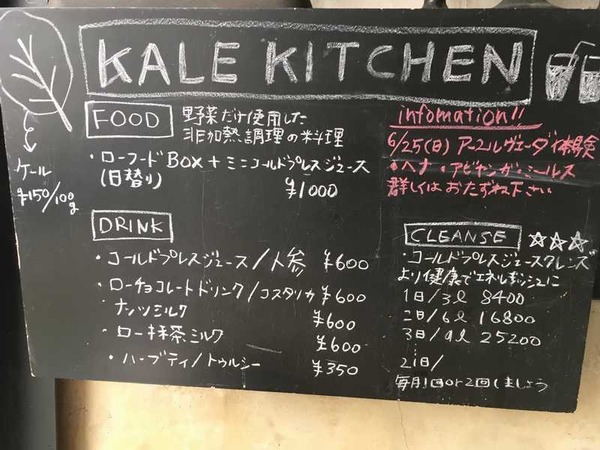 KALE KITCHEN
ケール
¥150/100g
FOOD
野菜だけ使用した
非加熱調理の料理
・ローフードBOX+ミニコールドプレスジュース
(日替り)
¥1000
DRINK
・コールドプレスジュース/人参 ¥600
・ローチョコレートドリンク/コスタリカ ¥600
ナッツミルク ¥600
・ロー抹茶ミルク ¥600
・ハーブティ/トゥルシー ¥350
infomation!!
6/25(日)アーユルヴェーダ体験
・ヘナ・アビヤンガ・ミールス
詳しくはおたずね下さい
CLEANSE ☆☆☆
・コールドプレスジュースクレンズ
より健康でエネルギッシュに
1日/3ℓ 8400
2日/6ℓ 16800
3日/9ℓ 25200
21日/
毎月1回or2回しましょう